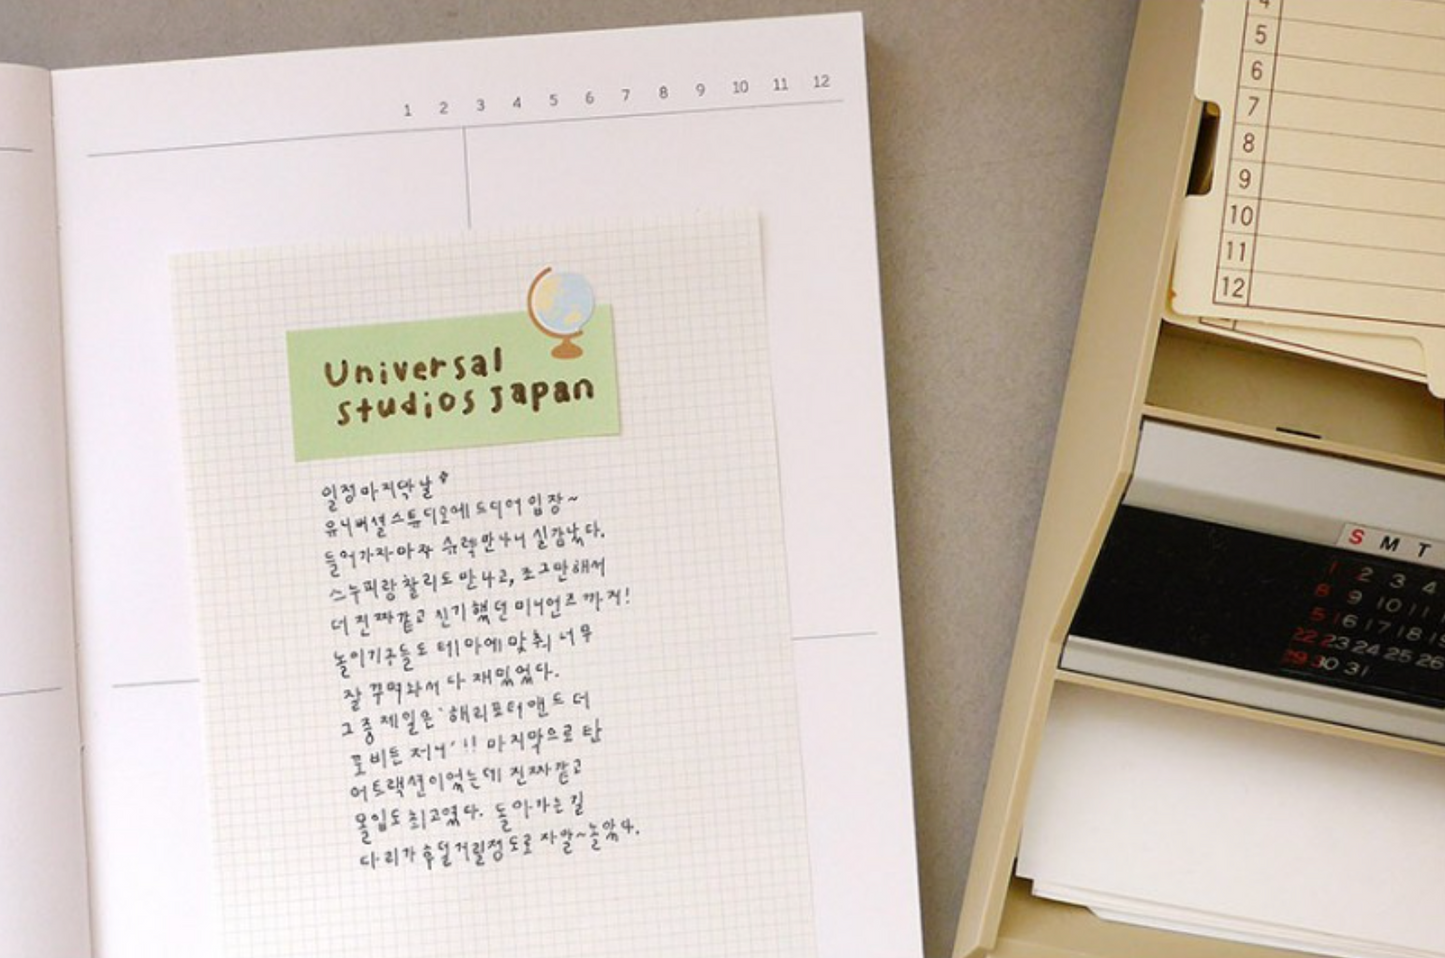 1 2 3 4 5 6 7 8 9 10 11 12
Universal
studios Japan
일정 마지막 날
유니버셜 스튜디오에 드디어 입장~
들어가자마자 슈렉 만나니 실감났다.
스누피랑 찰리도 만나고, 조그만해서
더 진짜같고 신기했던 미니언즈까지!
놀이기구들도 테마에 맞춰 너무
잘 꾸며놔서 다 재밌었다.
그 중 제일은 '해리포터 앤드 더
포비든 저니' !! 마지막으로 탄
어트랙션이었는데 진짜 같고
몰입도 최고였다. 돌아가는 길
다리가 후덜거릴정도로 자알~놀았다.
4
5
6
7
8
9
10
11
12
S M T
1 2 3 4
8 9 10 11
16 17 18 19
23 24 25 26
30 31